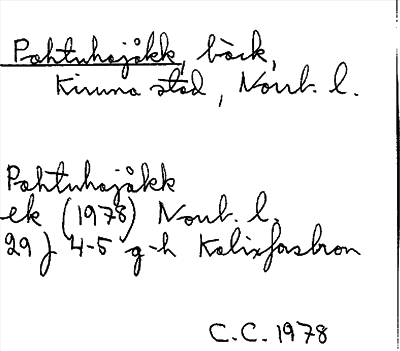 Pahtuhajåkk, bäck,
Kiruna stad, Norrb. l.
Pahtuhajåkk
ek (1978) Norrb. l.
29 J 4-5 g-h Kalixforsbron
C.C. 1978